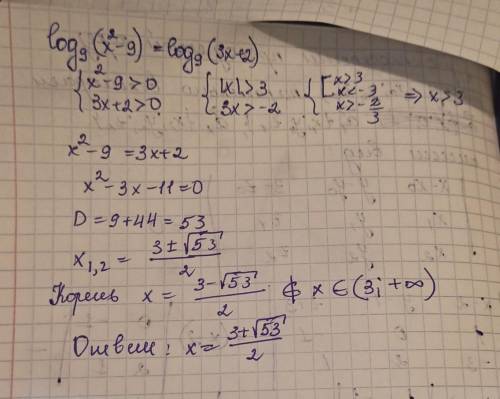 log₉(x²-9) = log₉(3x+2)
{ x²-9>0 { |x|>3 { [ x>3
x<-3
{ 3x+2>0 { 3x>-2 { x>-2/3 ⇒ x>3
x²-9 = 3x+2
x²-3x-11=0
D = 9+44 = 53
x₁,₂ = (3±√53)/2
Корень x = (3-√53)/2 ∉ x ∈ (3; +∞)
Ответ: x = (3+√53)/2